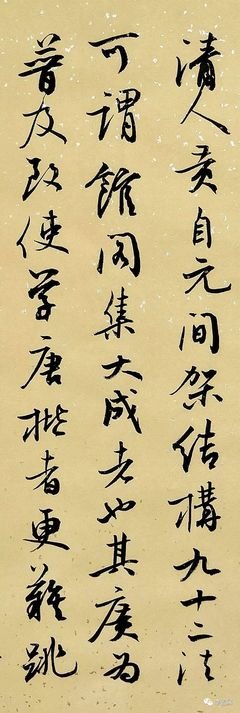 清人黄自元间架结構九十二法
可謂館阁集大成者也其廣为
普及致使学唐楷者更難跳